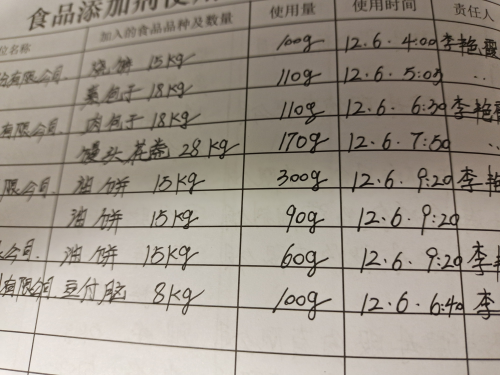 食品添加剂使用
位名称 加入的食品品种及数量 使用量 使用时间 责任人
有限公司 烧饼 15kg 100g 12.6.4:00 李艳霞
菜包子 18kg 110g 12.6.5:05 ..
有限公司. 肉包子 18kg 110g 12.6.6:30 李艳霞
馒头花卷 28kg 170g 12.6.7:50 ..
限公司. 油饼 15kg 300g 12.6.9:20 李艳
油饼 15kg 90g 12.6.9:20
公司. 油饼 15kg 60g 12.6.9:20 李艳
有限公司 豆付脑 8kg 100g 12.6.6:40 李